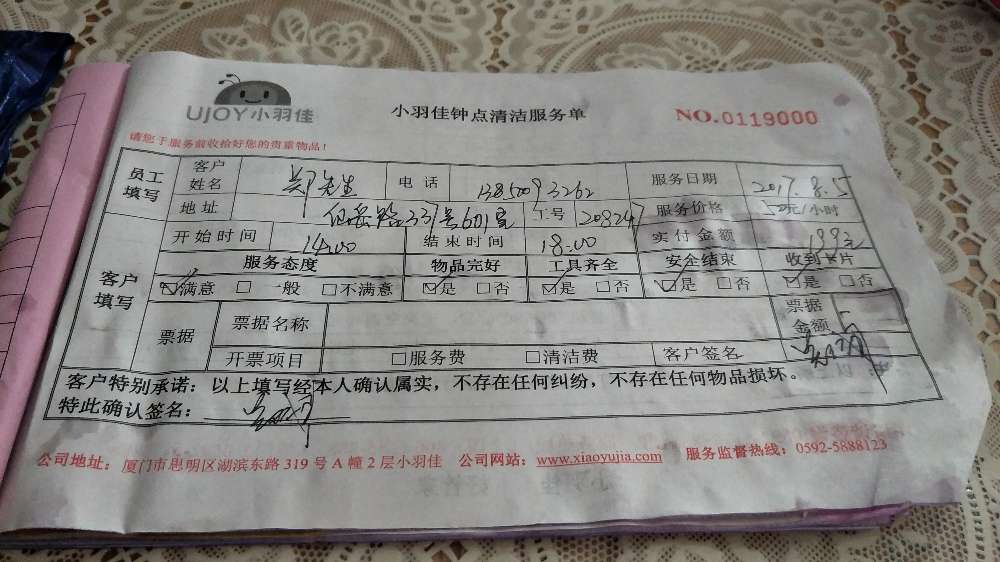 UJOY小羽佳
小羽佳钟点清洁服务单
NO.0119000
请您于服务前收拾好您的贵重物品！
员工填写 客户姓名 先生 电话 13850093262 服务日期 2017.8.5
地址 337号601室 工号 208247 服务价格 50元/小时
客户填写 开始时间 14:00 结束时间 18:00 实付金额 199元
服务态度 物品完好 工具齐全 安全结束 收到卡片
☑满意 □一般 □不满意 ☑是 □否 ☑是 □否 ☑是 □否 ☑是 □否
票据 票据名称 票据金额
开票项目 □服务费 □清洁费 客户签名
客户特别承诺：以上填写经本人确认属实，不存在任何纠纷，不存在任何物品损坏。
特此确认签名：
公司地址：厦门市思明区湖滨东路 319 号 A 幢 2 层小羽佳 公司网站：www.xiaoyujia.com 服务监督热线：0592-5888123